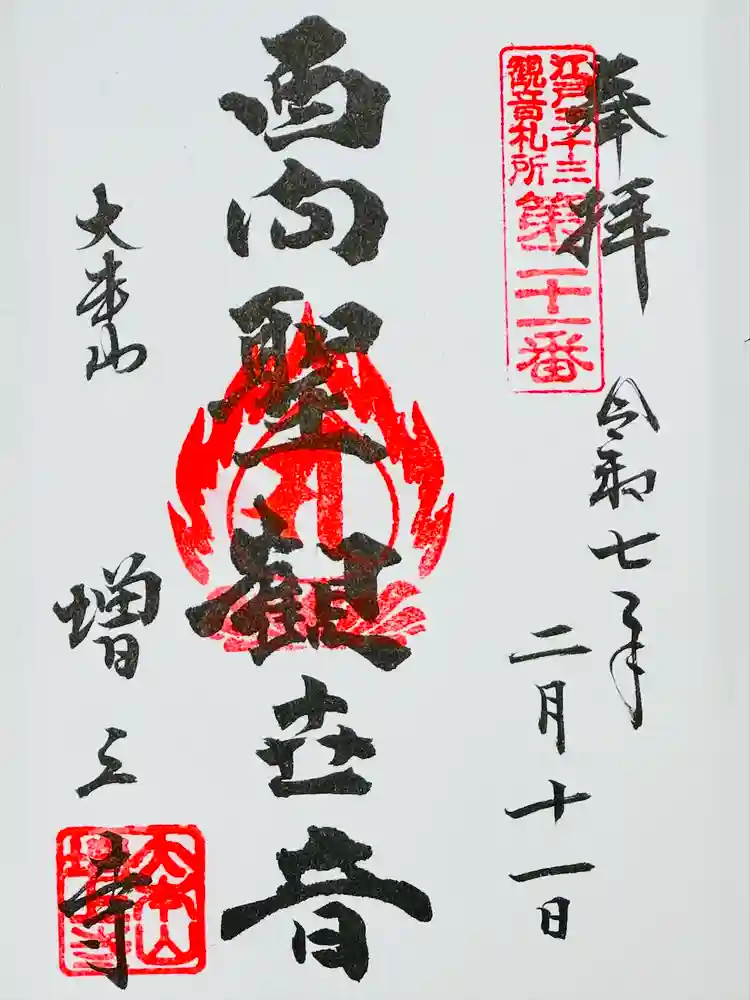 奉拝
江戸三十三
觀音札所
第二十一番
令和七年
二月十一日
西向聖観世音
大本山
増上寺
大本山
増上寺